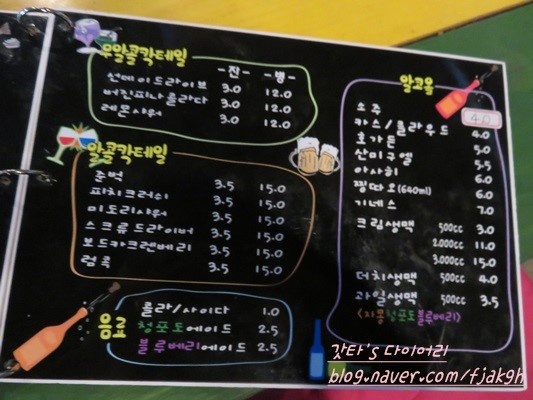 무알콜칵테일
-잔- -병-
선메이드라이브 3.0 12.0
버진피나콜라다 3.0 12.0
레몬사워 3.0 12.0
알콜칵테일
준벅 3.5 15.0
피치크러쉬 3.5 15.0
미도리사워 3.5 15.0
스크류드라이버 3.5 15.0
보드카크렌베리 3.5 15.0
럼콕 3.5 15.0
음료
콜라/사이다 1.0
청포도에이드 2.5
블루베리에이드 2.5
알코올
소주 4.0
카스/클라우드 4.0
호가든 5.0
산미구엘 5.5
아사히 6.0
찡따오(640ml) 6.0
기네스 7.0
크림생맥 500cc 3.0
2.000cc 11.0
3.000cc 15.0
더치생맥 500cc 4.0
과일생맥 500cc 3.5
<자몽청포도블루베리>
갓타's 다이어리
blog.naver.com/fjak9h